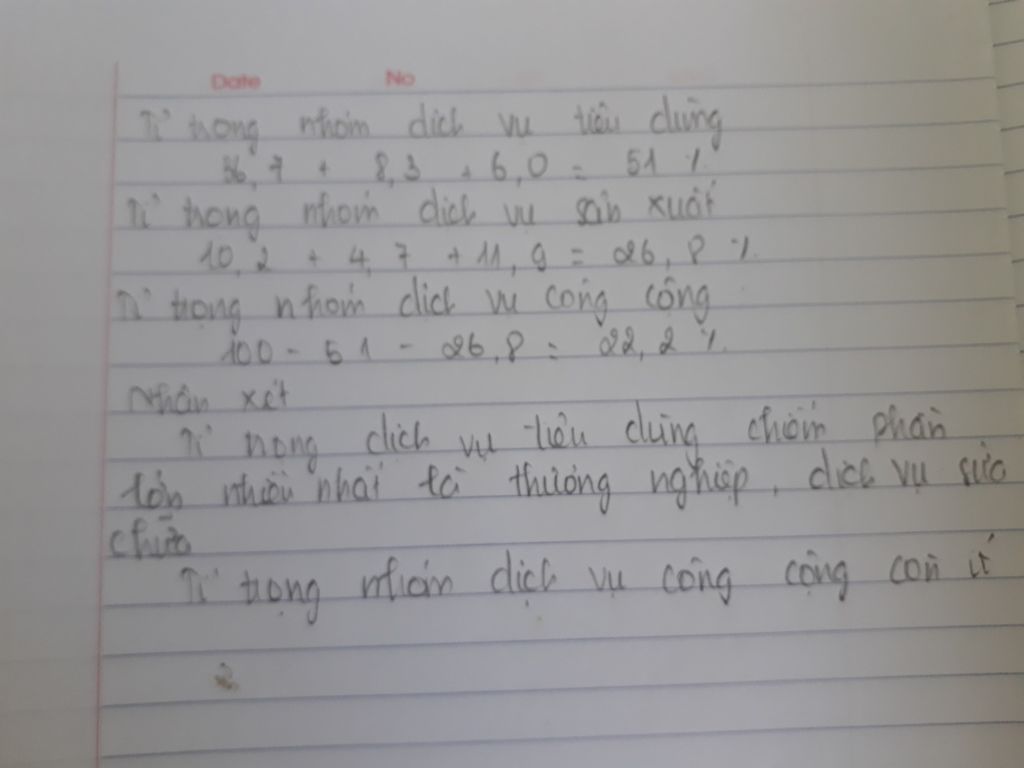 Date No
Tỉ trọng nhóm dịch vụ tiêu dùng
36,7 + 8,3 + 6,0 = 51 %
Tỉ trọng nhóm dịch vụ sản xuất
10,2 + 4,7 + 11,9 = 26,8 %
Tỉ trọng nhóm dịch vụ công cộng
100 - 51 - 26,8 = 22,2 %
Nhận xét
Tỉ trọng dịch vụ tiêu dùng chiếm phần
lớn nhiều nhất là thương nghiệp, dịch vụ sửa
chữa
Tỉ trọng nhóm dịch vụ công cộng còn ít